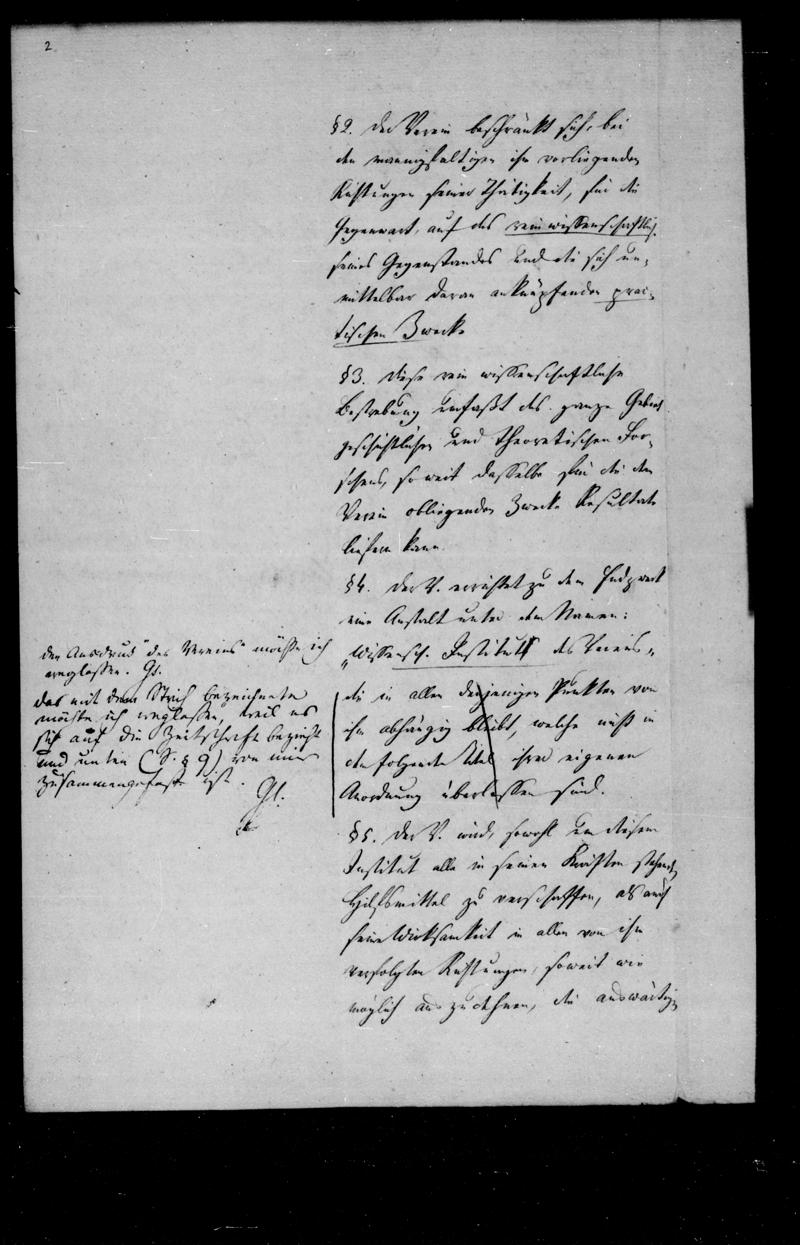 2
§2. Der Verein beschränkt sich, bei
den mannigfaltigen ihm vorliegenden
Richtungen seiner Thätigkeit, für die
Gegenwart, auf das rein wissenschaftlich.
seines Gegenstandes und die sich un-
mittelbar daran anknüpfenden prac-
tischen Zwecke
§3. Diese rein wissenschaftliche
Bestrebung umfaßt das ganze Gebiet
geschichtlichen und theoretischen For-
schens, so weit dasselbe für die dem
Verein obliegenden Zwecke Resultate
liefern kann.
§4. Der V. errichtet zu dem Endzweck
eine Anstalt unter dem Namen:
„Wissensch. Institut des Vereins„
die in allen denjenigen Punkten von
ihm abhängig bleibt, welche nicht in
den folgenden Titel ihrer eigenen
Anordnung überlassen sind.
§5. Der V. wird, sowohl um diesem
Institut alle in seinen Kräften stehend.
Hilfsmittel zu verschaffen, als auch
seine Wirksamkeit in allen von ihm
verfolgten Richtungen, soweit wie
möglich auszudehnen, die auswärtig.
den Ausdruck "des Vereins" möchte ich
weglassen. Gl.
Das mit dem Strich bezeichnete
möchte ich weglassen, weil es
sich auf die Zeitschrift bezieht
und unten (S. § 9) von mir
zusammengefaßt ist.
Gl.